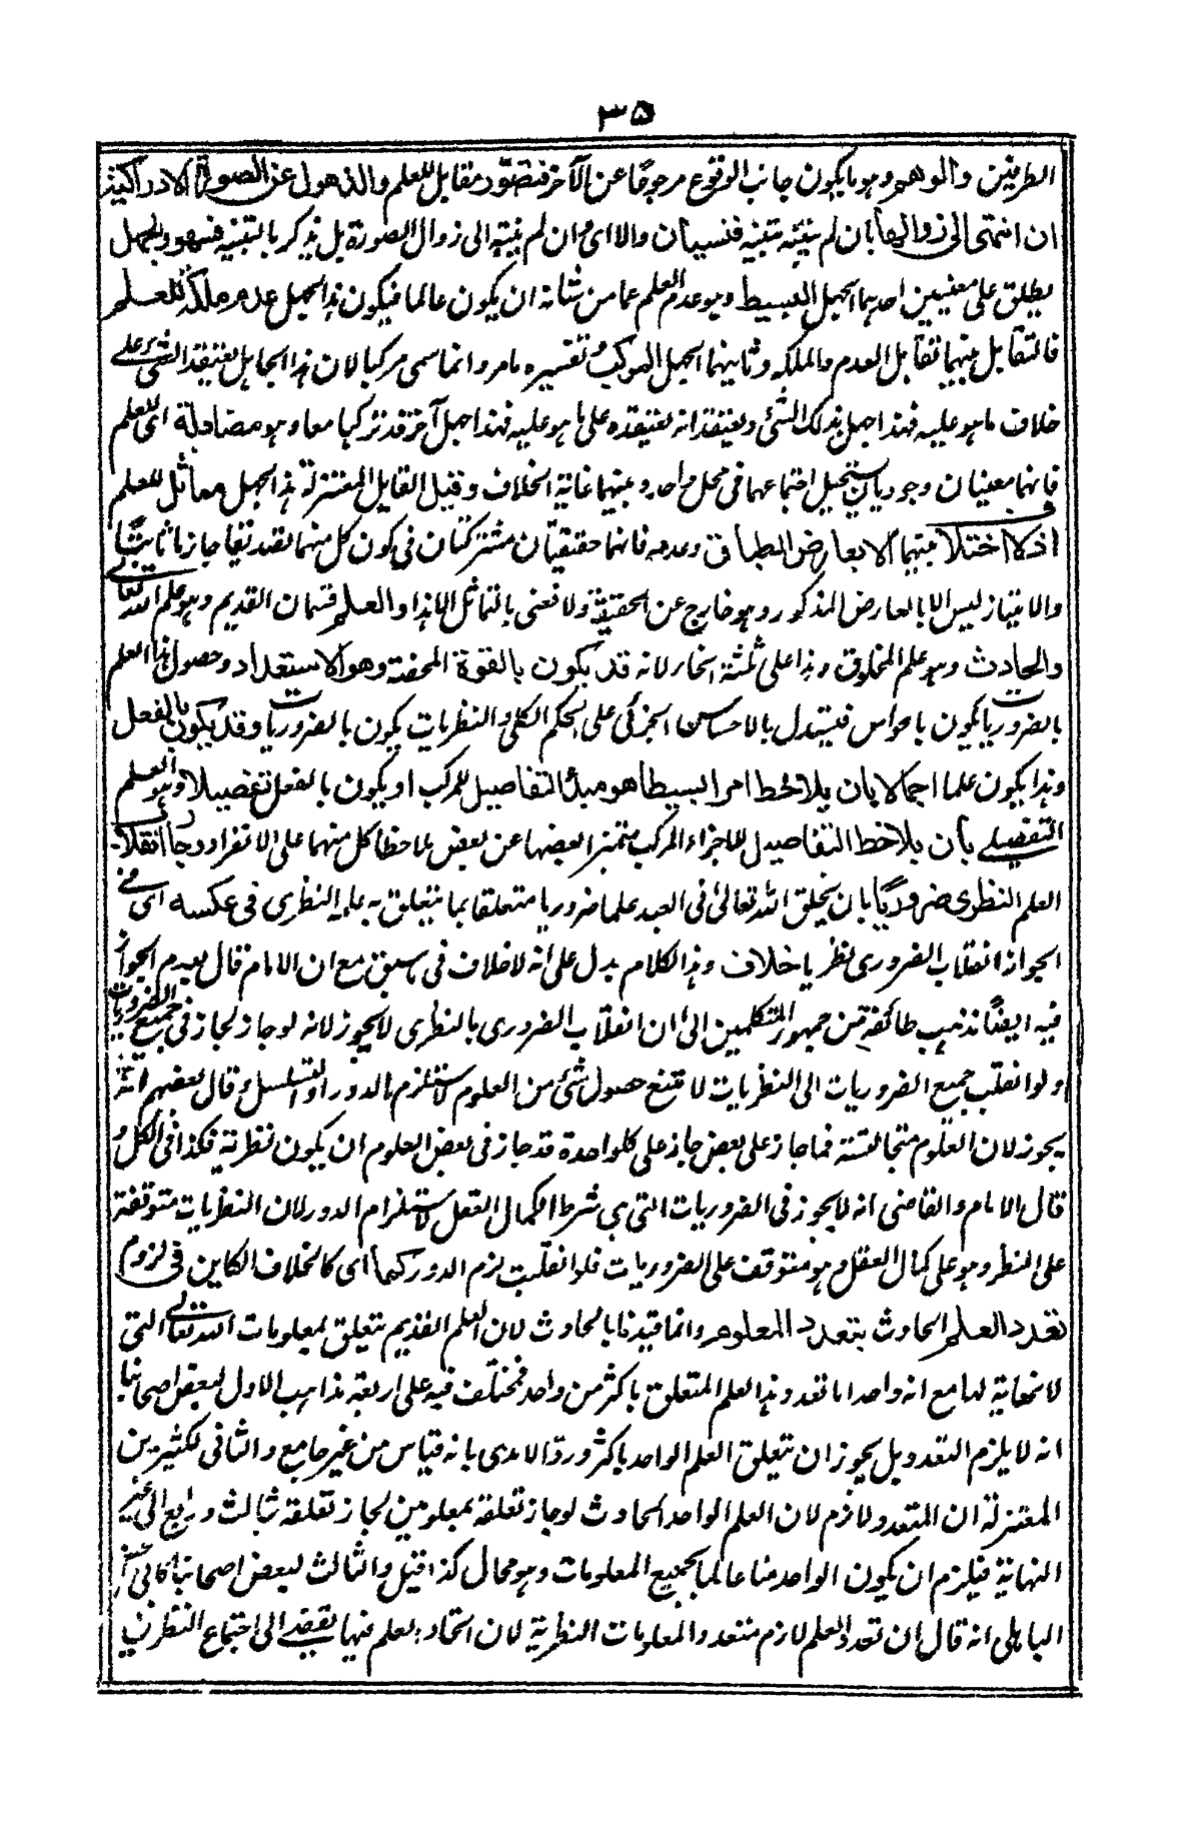 ٣٥
الطرفين والوهم وهو ما يكون جانب الوقوع مرجوحا عن الآخر فتصور مقابل للعلم والذهول عن الصورة الادراكية
ان انتهى الى زوالها بان لم ينبه تنبيه فنسيان والا اى وان لم ينته الى زوال الصورة بل يذكر بالتنبيه فسهو والجهل
يطلق على معنيين احدهما الجهل البسيط وهو عدم العلم عما من شانه ان يكون عالما فيكون هذا الجهل عدم ملكة للعلم
فالتقابل بينهما تقابل العدم والملكة وثانيهما الجهل المركب وتفسيره ما مر وانما سمى مركبا لان هذا الجاهل يعتقد الشئ على
خلاف ما هو عليه فهذا جهل بذلك الشئ ويعتقد انه يعتقده على ما هو عليه فهذا جهل آخر قد تركبا معا وهو مضاد له اى للعلم
فانهما معنيان وجوديان يستحيل اجتماعهما فى محل واحد وبينهما غاية الخلاف وقيل القايل المعتزلة هذا الجهل مماثل للعلم
اذ لا اختلاف بينهما الا بعارض المطابق وعدمه فانهما حقيقتان مشتركتان فى كون كل منهما تصديقا جازما ثابتا
والامتياز ليس الا بالعارض المذكور وهو خارج عن الحقيقة ولا نعنى بالتماثل الا هذا والعلم قسمان القديم وهو علم الله تعالى
والحادث وهو علم المخلوق وهذا على ثلثة انحاء لانه قد يكون بالقوة المحضة وهو الاستعداد وحصول هذا العلم
بالضروريات يكون باحواس فيستدل بالاحساس الجزئى على الحكم الكلى والنظريات يكون بالضروريات وقد يكون بالفعل
وهذا يكون علما اجمالا بان يلاحظ امرا بسيطا هو مبدأ التفاصيل للمركب او يكون بالفعل تفصيلا وهو العلم
التفصيلى بان يلاحظ التفاصيل للاجزاء المركب متميز بعضها عن بعض بملاحظا كل منهما على الانفراد وجاز انقلاب
العلم النظرى ضروريا بان يخلق الله تعالى فى العبد علما ضروريا متعلقا بما يتعلق به علمه النظرى فى عكسه اى فى
الجواز انقلاب الضرورى نظريا خلاف وهذا الكلام يدل على انه لا خلاف فى سبق مع ان الامام قال بعدم الجواز
فيه ايضا فذهب طائفة من جمهور المتكلمين الى ان انقلاب الضرورى بالنظرى لا يجوز لانه لو جاز لجاز فى جميع الضروريات
ولو انقلب جميع الضروريات الى النظريات لامتنع حصول شئ من العلوم لاستلزم الدور او التسلسل وقال بعضهم انه
يجوز لان العلوم متجانسة فما جاز على بعض جاز على كلواحدة قد جاز فى بعض العلوم ان يكون نظرية فكذا فى الكل و
قال الامام والقاضى انه لا يجوز فى الضروريات التى هى شرط الكمال العقل لاستلزام الدور لان النظريات متوقفة
على النظر وهو على كمال العقل وهو متوقف على الضروريات فلو انقلبت لزم الدور كما اى كالخلاف الكاين فى لزوم
تعدد العلم الحادث بتعدد المعلوم وانما قيدنا بالحادث لان العلم القديم يتعلق بمعلومات الله تعالى التى
لا نهاية لها مع انه واحد اما تعدد هذا العلم المتعلق باكثر من واحد فمختلف فيه على اربعة مذاهب الاول لبعض اصحابنا
انه لا يلزم التعدد بل يجوز ان يتعلق العلم الواحد باكثر ورد الآمدى بانه قياس من غير جامع والثانى لكثير من
المعتزلة ان التعدد لازم لان العلم الواحد الحادث لو جاز تعلقة بمعلومين لجاز تعلقة بثالث ورابع الى غير
النهاية فيلزم ان يكون الواحد منا عالما بجميع المعلومات وهو محال كذا قيل والثالث لبعض اصحابنا كابى الحسن
الباهلى انه قال ان تعدد العلم لازم متعدد المعلومات النظرية لان اتحاد العلم فيها يفضى الى اجتماع النظرين